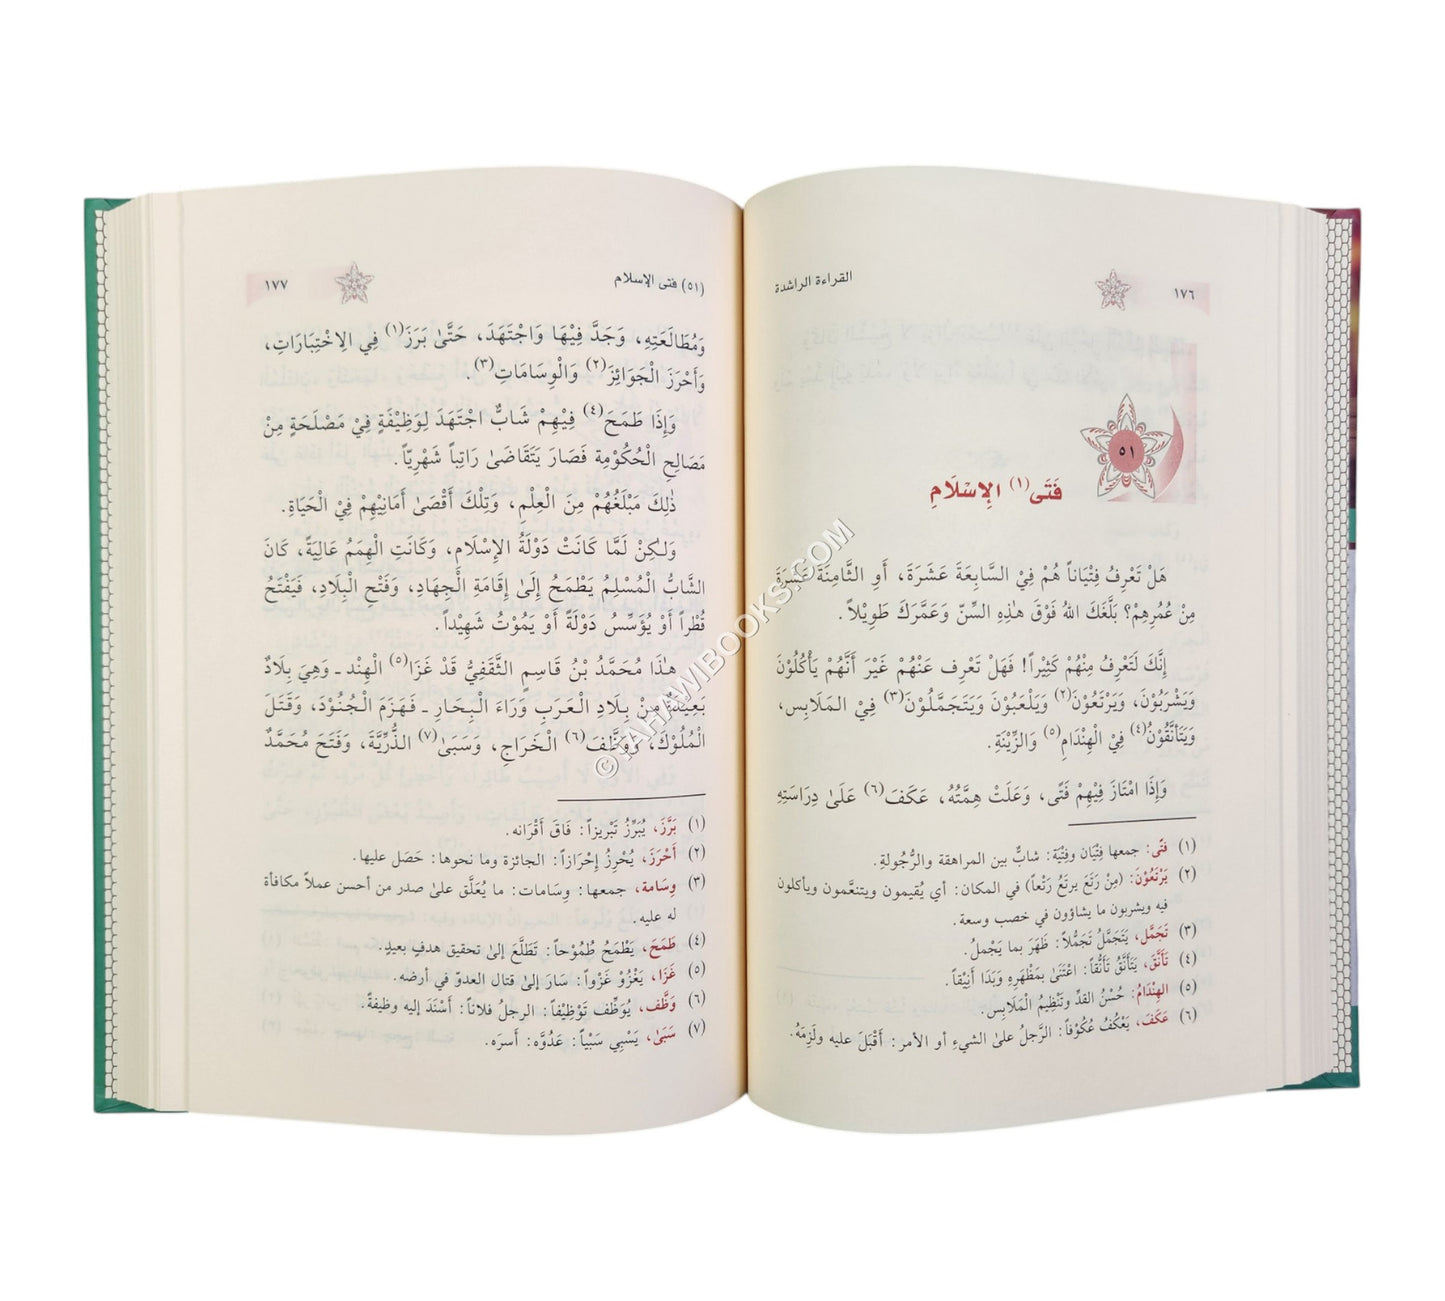 ١٧٦
القراءة الراشدة
٥١
فَتَى(١) الإِسْلَامِ
هَلْ تَعْرِفُ فِتْيَاناً هُمْ فِيْ السَّابِعَةَ عَشَرَةَ، أَوِ الثَّامِنَةَ عَشَرَةَ
مِنْ عُمُرِهِمْ؟ بَلَّغَكَ اللهُ فَوْقَ هٰذِهِ السِّنّ وَعَمَّرَكَ طَوِيْلاً.
إِنَّكَ لَتَعْرِفُ مِنْهُمْ كَثِيْراً! فَهَلْ تَعْرِف عَنْهُمْ غَيْرَ أَنَّهُمْ يَأْكُلُوْنَ
وَيَشْرَبُوْنَ، وَيَرْتَعُوْنَ(٢) وَيَلْعَبُوْنَ وَيَتَجَمَّلُوْنَ(٣) فِيْ المَلَابِس،
وَيَتَأَنَّقُوْنُ(٤) فِيْ الْهِنْدَامِ(٥) وَالزِّيْنَةِ.
وَإِذَا امْتَازَ فِيْهِمْ فَتًى، وَعَلَتْ هِمَّتُهُ، عَكَفَ(٦) عَلَىٰ دِرَاسَتِهِ
(١) فتًى: جمعها فِتْيَان وفِتْيَة: شابٌّ بين المراهقة والرُّجُولةِ.
(٢) يَرْتَعُوْنَ: (مِنْ رَتَعَ يرتَعُ رَتْعاً) في المكان: أي يُقيمون ويتنعَّمون ويأكلون
فيه ويشربون ما يشاؤون في خصب وسعة.
(٣) تَجَمَّل، يَتَجَمَّلُ تَجَمُّلاً: ظَهَرَ بما يَجْملُ.
(٤) تَأَنَّقَ، يَتَأَنَّقُ تَأَنُّقاً: اعْتَنَىٰ بمَظْهَرِهِ وَبَدَا أَنِيْقاً.
(٥) الهِنْدَامُ: حُسْنُ القدِّ وتَنْظِيْمُ الْمَلَابِس.
(٦) عَكَفَ، يَعْكُفُ عُكُوْفاً: الرَّجلُ علىٰ الشيءِ أو الأمر: أَقْبَلَ عليه ولَزِمَهُ.
(٥١) فتى الإسلام
١٧٧
وَمُطَالَعَتِهِ، وَجَدَّ فِيْهَا وَاجْتَهَدَ، حَتَّىٰ بَرَزَ(١) فِي الِاخْتِبَارَاتِ،
وَأَحْرَزَ الْجَوَائِزَ(٢) وَالْوِسَامَاتِ(٣).
وَإِذَا طَمَحَ(٤) فِيْهِمْ شَابٌّ اجْتَهَدَ لِوَظِيْفَةٍ فِيْ مَصْلَحَةٍ مِنْ
مَصَالِحِ الْحُكُوْمِة فَصَارَ يَتَقَاضَىٰ رَاتِباً شَهْرِيّاً.
ذٰلِكَ مَبْلَغُهُمْ مِنَ الْعِلْمِ، وَتِلْكَ أَقْصَىٰ أَمَانِيْهِمْ فِيْ الْحَيَاةِ.
وَلٰكِنْ لَمَّا كَانَتْ دَوْلَةُ الإِسْلَامِ، وَكَانَتِ الْهِمَمُ عَالِيَةً، كَانَ
الشَّابُّ الْمُسْلِمُ يَطْمَحُ إِلَىٰ إِقَامَةِ الْجِهَادِ، وَفَتْحِ الْبِلَادِ، فَيَفْتَحُ
قُطْراً أَوْ يُؤَسِّسُ دَوْلَةً أَوْ يَمُوْتُ شَهِيْداً.
هٰذَا مُحَمَّدُ بْنُ قَاسِمٍ الثَّقَفِيُّ قَدْ غَزَا(٥) الْهِنْد ـ وَهِيَ بِلَادٌ
بَعِيْدَةٌ مِنْ بِلَادِ الْعَرَبِ وَرَاءَ الْبِحَارِ ـ فَهَزَمَ الْجُنُوْدَ، وَقَتَلَ
الْمُلُوْكَ، وَوَظَّفَ(٦) الْخَرَاجِ، وَسَبَىٰ(٧) الذُّرِّيَّةَ، وَفَتَحَ مُحَمَّدٌ
(١) بَرَّزَ، يُبَرِّزُ تَبْرِيزاً: فَاقَ أَقْرَانه.
(٢) أَحْرَزَ، يُحْرِزُ إِحْرَازاً: الجائزة وما نحوها: حَصَل عليها.
(٣) وِسَامة، جمعها: وِسَامات: ما يُعَلَّق علىٰ صدر من أحسن عملاً مكافأة
له عليه.
(٤) طَمَحَ، يَطْمَحُ طُمُوْحاً: تَطَلَّعَ إلىٰ تحقيق هدفٍ بعيدٍ.
(٥) غَزَا، يَغْزُوْ غَزْواً: سَارَ إلىٰ قتال العدوّ في أرضه.
(٦) وَظَّف، يُوَظِّف تَوْظِيْفاً: الرجلُ فلاناً: أَسْنَدَ إليه وظيفةً.
(٧) سَبَىٰ، يَسْبِي سَبْياً: عَدُوَّه: أسرَه.
© TAHAWIBOOKS.COM